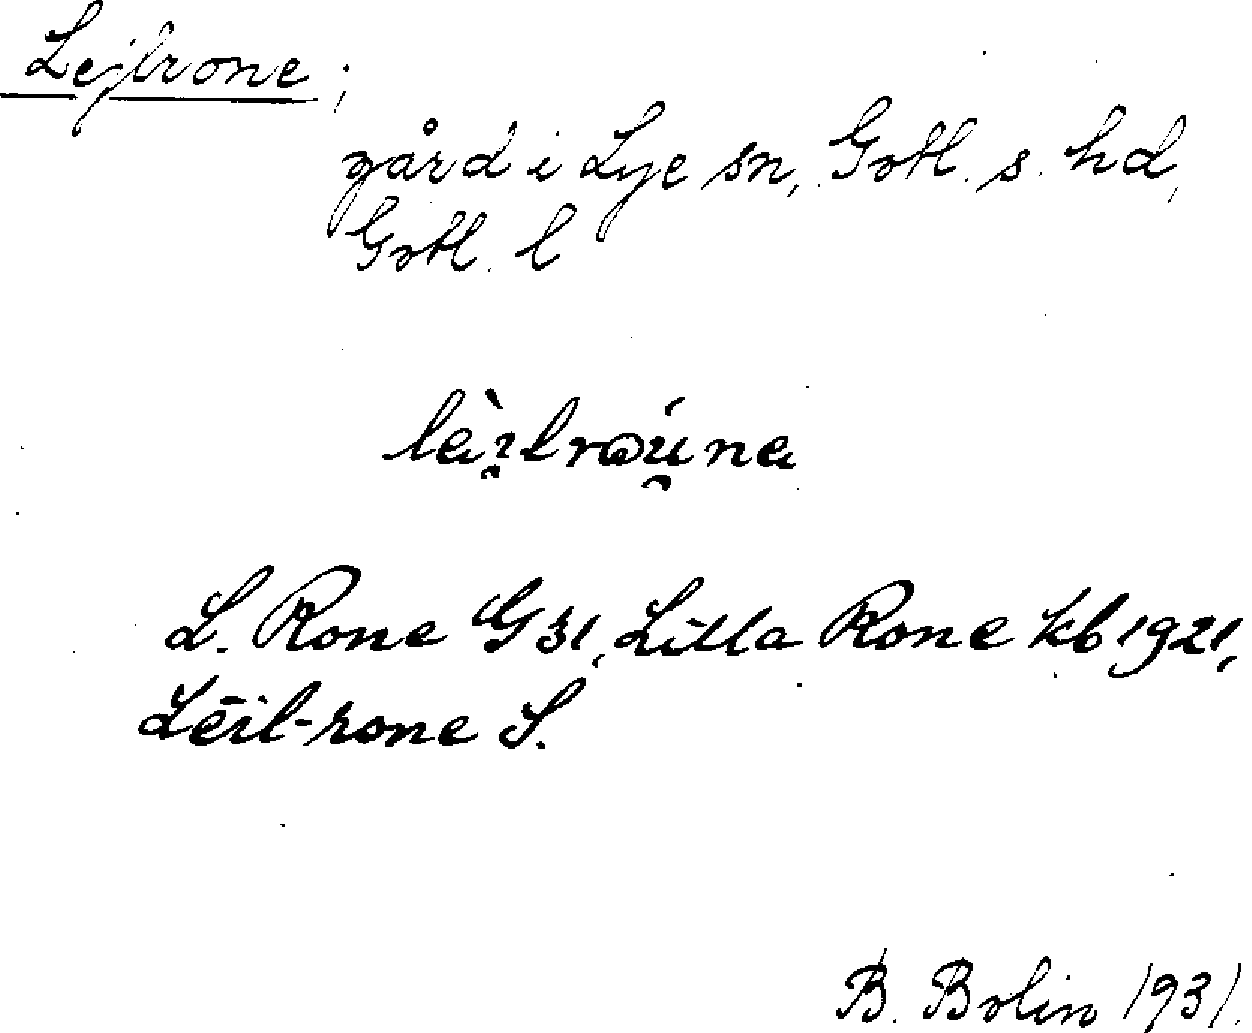 Lejlrone;
gård i Lye sn, Gotl. s. hd,
Gotl. l
L. Rone G 31, Lilla Rone kb 1921,
Lēil-rone S.
B. Bolin 1931.